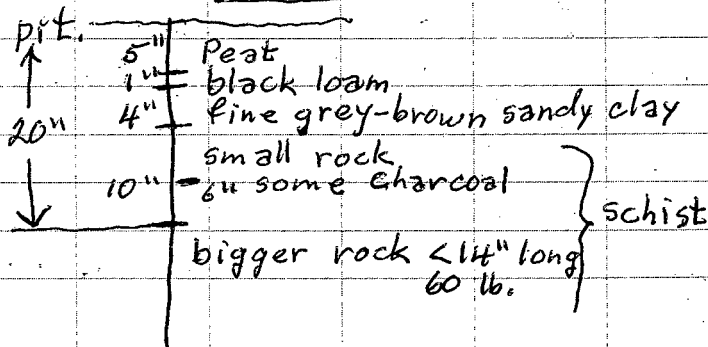 pit.
5" Peat
1" black loam
4" fine grey-brown sandy clay
20"
small rock
10" 6" some charcoal
schist
bigger rock <14" long
60 lb.